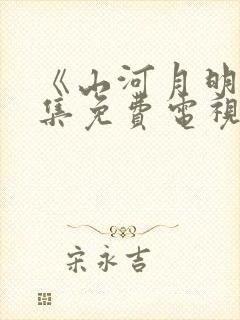 《山河月明
集免費電視
宋永吉